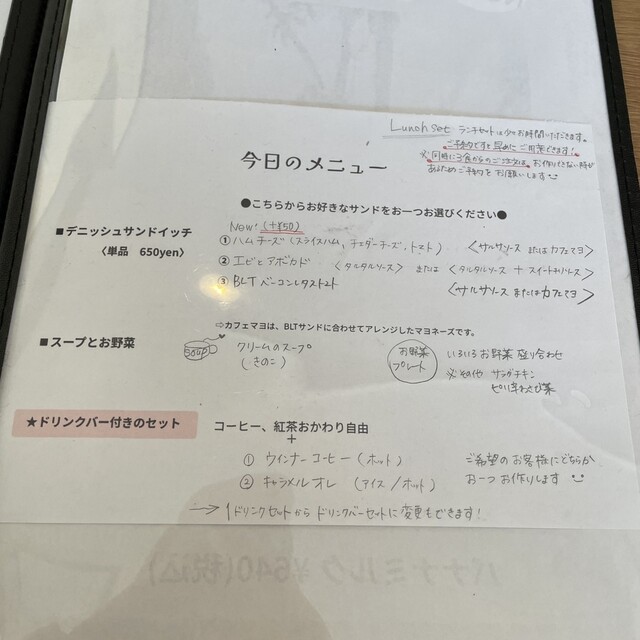 Lunch set ランチセットは少々お時間いただきます。
ご予約ですと早めにご用意できます!
※同時に3食からのご注文は、お作りできない時が
あるためご予約をお願いします
今日のメニュー
●こちらからお好きなサンドをお一つお選びください●
■デニッシュサンドイッチ
〈単品 650yen〉
New! (+¥50)
①ハムチーズ(スライスハム,チェダーチーズ,トマト) 〈サルサソース またはカフェマヨ〉
②エビとアボカド 〈タルタルソース〉 または 〈タルタルソース + スイートチリソース〉
③BLT ベーコンレタストマト 〈サルサソース またはカフェマヨ〉
⇨カフェマヨは、BLTサンドに合わせてアレンジしたマヨネーズです。
■スープとお野菜
soup クリームのスープ
(きのこ)
お野菜
プレート
いろいろお野菜盛り合わせ
※その他 サラダチキン
★ドリンクバー付きのセット
コーヒー、紅茶おかわり自由
+
① ウインナーコーヒー(ホット)
② キャラメルオレ (アイス/ホット)
ご希望のお客様にどちらか
お一つお作りします
→1ドリンクセットからドリンクバーセットに変更もできます!
バナナミルク ¥640(税込)